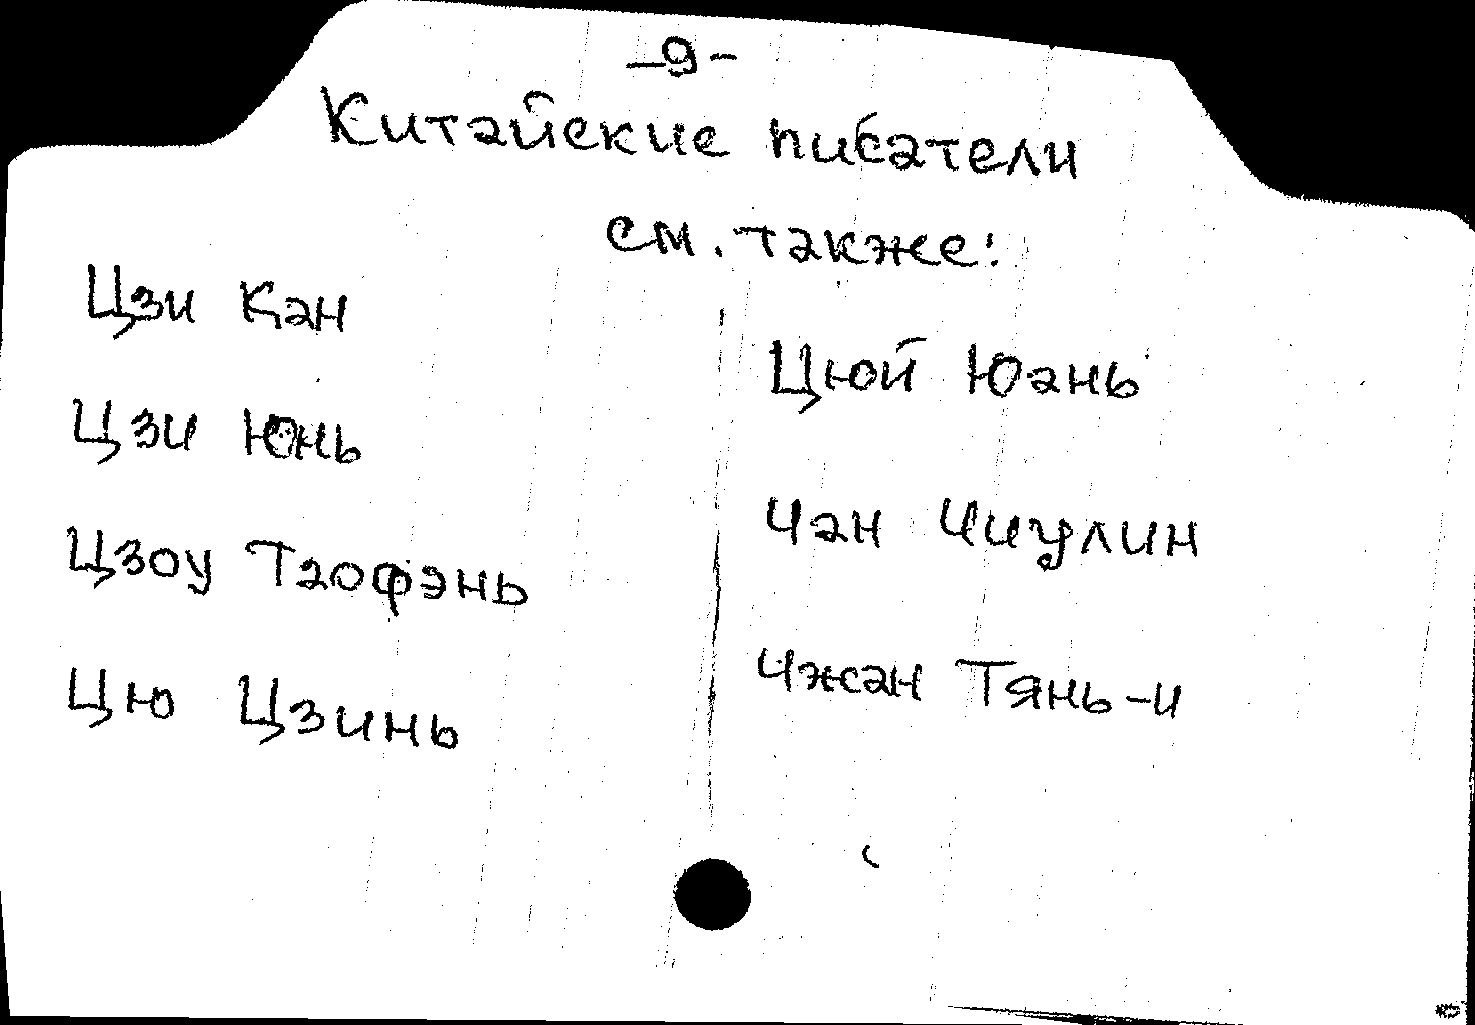 -9-
Китайские писатели
см. также:
Цзи Кан
Цзи Юнь
Цзоу Таофэнь
Цю Цзинь
Цюй Юань
Чан Чиулин
Чжан Тянь-и